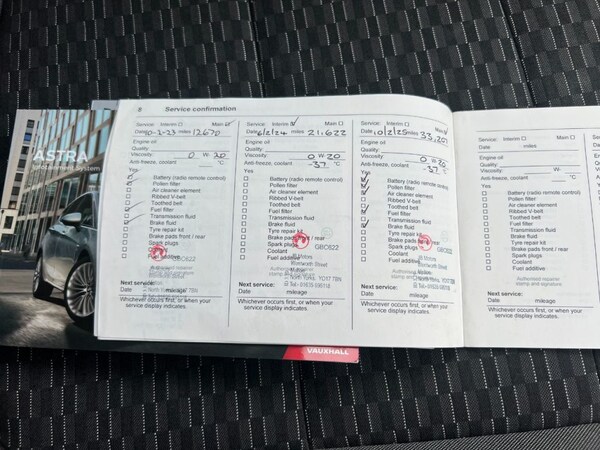 ASTRA
Infotainment System
VAUXHALL
8 Service confirmation
Service: Interim Main
Date 10-2-23 miles 12670
Engine oil
Quality
Viscosity 0 W 20
Anti-freeze, coolant °C
Yes
Battery (radio remote control)
Pollen filter
Air cleaner element
Ribbed V-belt
Toothed belt
Fuel filter
Transmission fluid
Brake fluid
Tyre repair kit
Brake pads front / rear
Spark plugs
Coolant
Fuel additive
Authorised repairer
stamp and signature
Next service:
Date mileage
Whichever occurs first, or when your
service display indicates.
Service: Interim Main
Date 6/2/24 miles 21,622
Engine oil
Quality
Viscosity 0 W 20
Anti-freeze, coolant -37 °C
Yes
Battery (radio remote control)
Pollen filter
Air cleaner element
Ribbed V-belt
Toothed belt
Fuel filter
Transmission fluid
Brake fluid
Tyre repair kit
Brake pads front / rear
Spark plugs
GBC622
Coolant
Fuel additive
Malton
North Yorks. YO17 7BN
Next service:
Date mileage
Whichever occurs first, or when your
service display indicates.
Service: Interim Main
Date 10/2/25 miles 33,207
Engine oil
Quality
Viscosity 0 W 20
Anti-freeze, coolant -37 °C
Yes
Battery (radio remote control)
Pollen filter
Air cleaner element
Ribbed V-belt
Toothed belt
Fuel filter
Transmission fluid
Brake fluid
Tyre repair kit
Brake pads front / rear
Spark plugs
GBC622
Coolant
Fuel additive
Authorised repairer
stamp and signature
Next service:
Date mileage
Whichever occurs first, or when your
service display indicates.
Service: Interim Main
Date miles
Engine oil
Quality
Viscosity W
Anti-freeze, coolant °C
Yes
Battery (radio remote control)
Pollen filter
Air cleaner element
Ribbed V-belt
Toothed belt
Fuel filter
Transmission fluid
Brake fluid
Tyre repair kit
Brake pads front / rear
Spark plugs
Coolant
Fuel additive
Authorised repairer
stamp and signature
Next service:
Date mileage
Whichever occurs first, or when your
service display indicates.